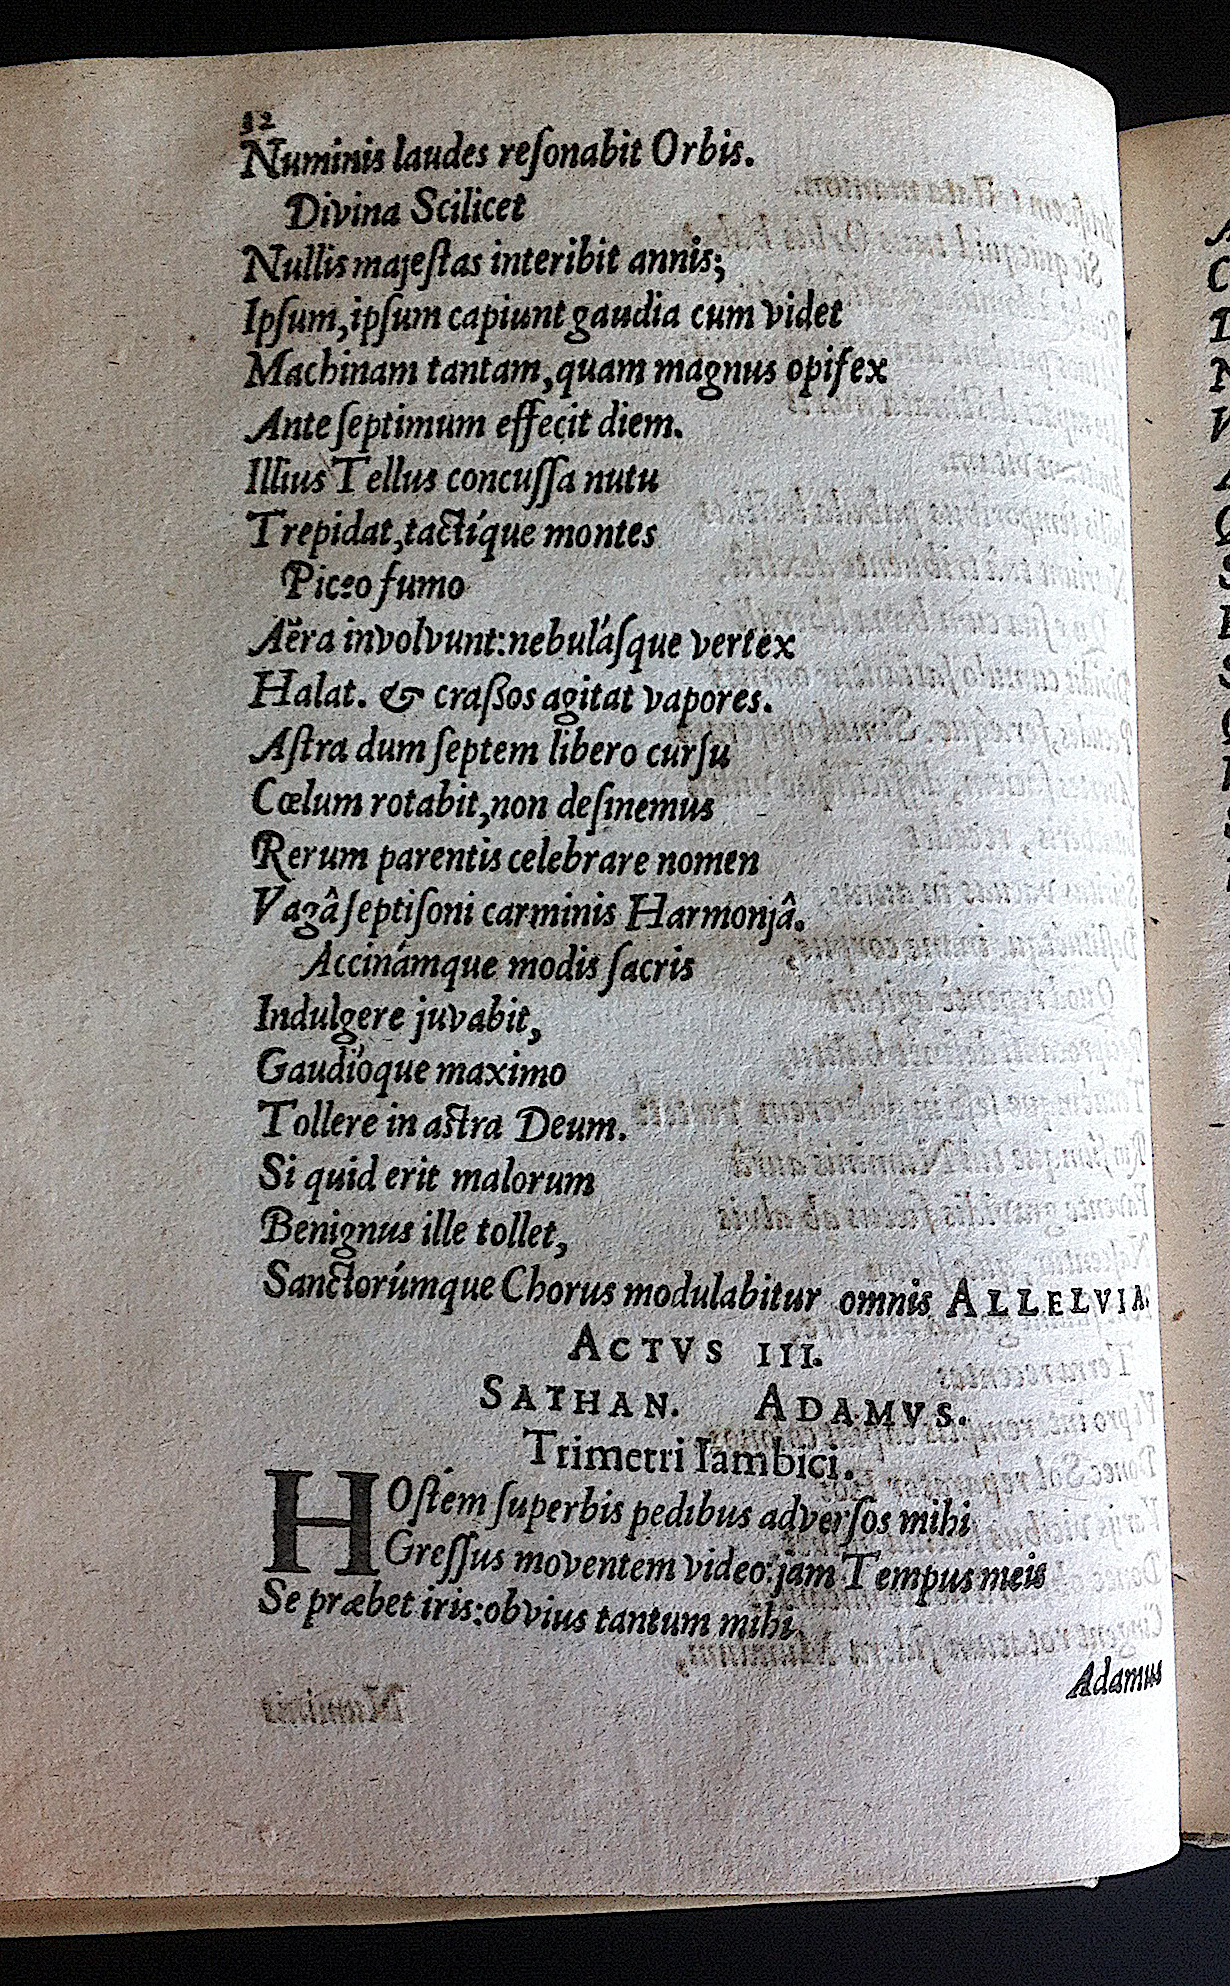 32
Numinis laudes reſonabit Orbis.
Divina Scilicet
Nullis majeſtas interibit annis;
Ipſum, ipſum capiunt gaudia cum videt
Machinam tantam, quam magnus opifex
Ante ſeptimum effecit diem.
Illius Tellus concuſſa nutu
Trepidat, tactíque montes
Piceo fumo
Aëra involvunt: nebuláſque vertex
Halat. & craſsos agitat vapores.
Aſtra dum ſeptem libero curſu
Cœlum rotabit, non deſinemus
Rerum parentis celebrare nomen
Vagâ ſeptiſoni carminis Harmonjâ.
Accinámque modis ſacris
Indulgere juvabit,
Gaudióque maximo
Tollere in aſtra Deum.
Si quid erit malorum
Benignus ille tollet,
Sanctorúmque Chorus modulabitur omnis ALLELVIA.
ACTVS III.
SATHAN. ADAMVS.
Trimetri Iambici.
HOſtem ſuperbis pedibus adverſos mihi
Greſſus moventem video: jam Tempus meis
Se præbet iris: obvius tantum mihi
Adamus